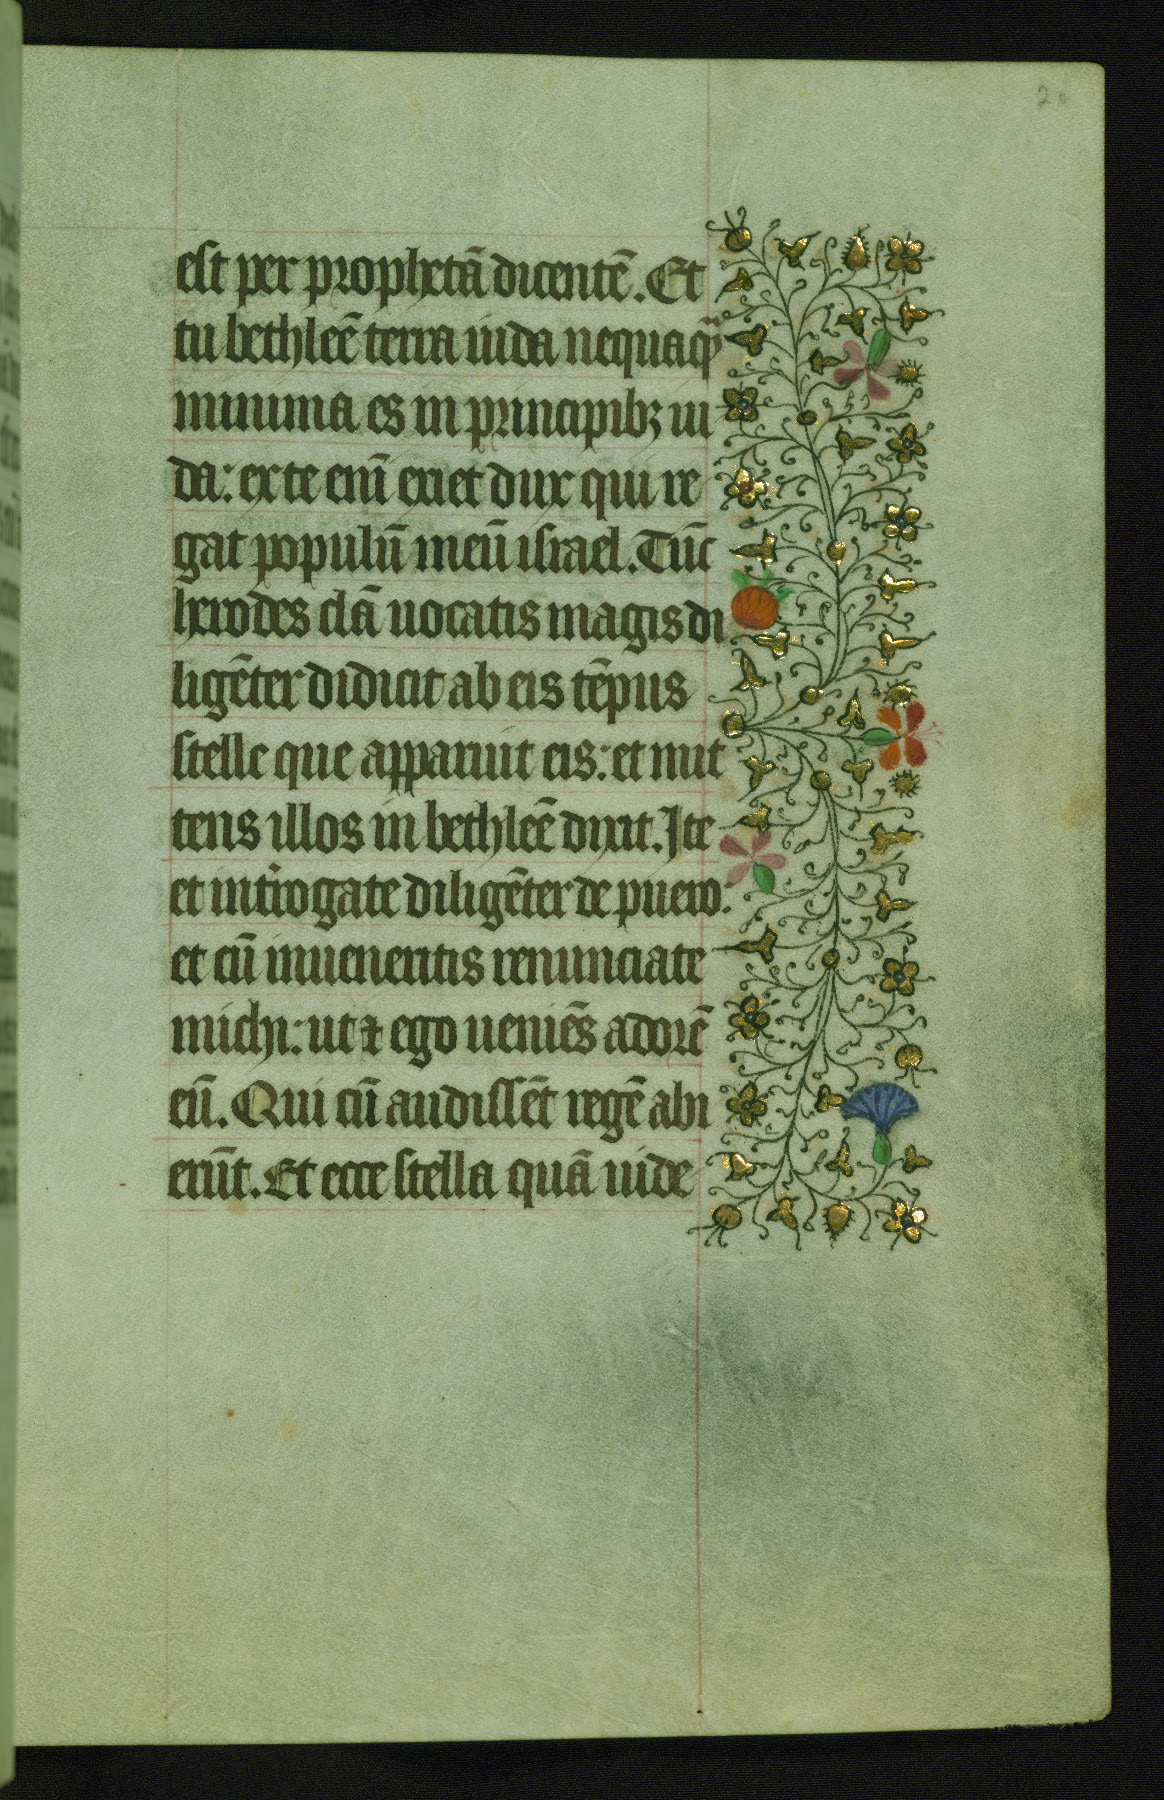 20
est per prophetā dicentē. Et
tu bethleē terra iuda nequaqꝫ
minima es in principibꝫ iu
da: ex te enī exiet dux qui re
gat populū meū israel. Tūc
herodes clā uocatis magis di
ligēter didicit ab eis tēpus
stelle que apparuit eis: et mit
tens illos in bethleē dixit. Ite
et introgate diligēter de puero:
et cū inueneritis renunciate
michi: ut ⁊ ego ueniēs adorē
eū. Qui cū audissēt regē abi
erūt. Et ecce stella quā uide